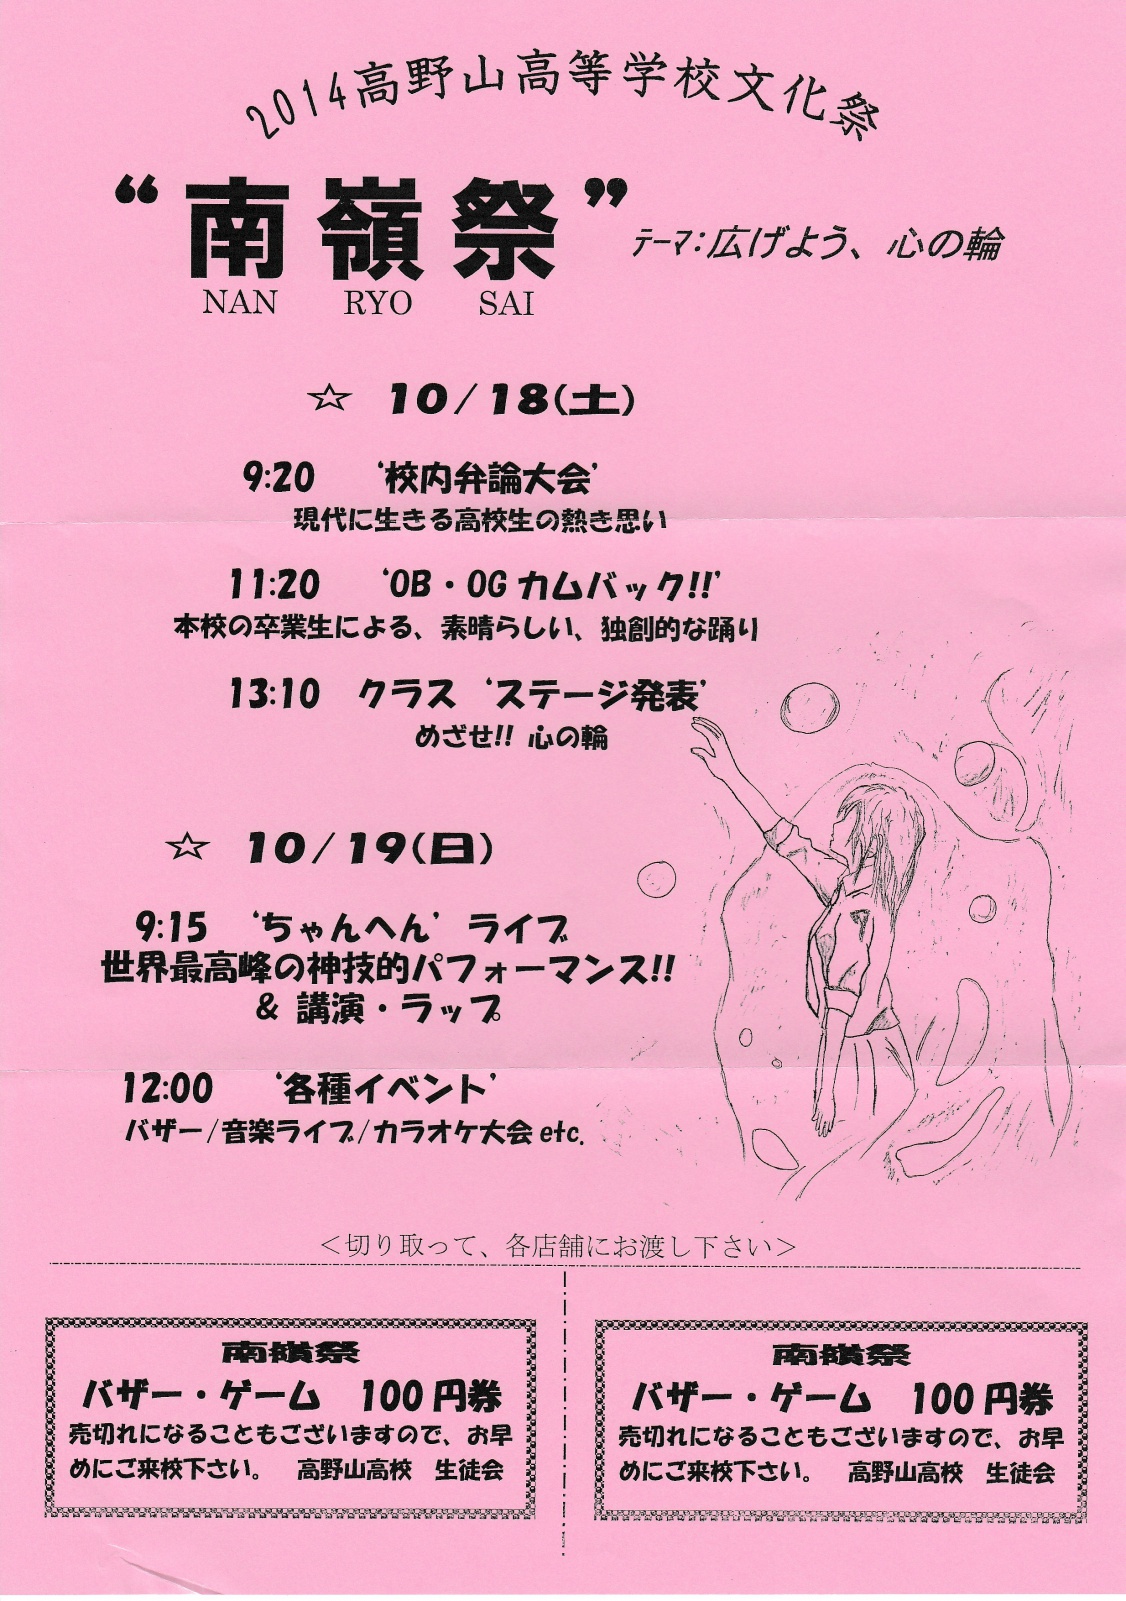 2014高野山高等学校文化祭
“南嶺祭”
NAN RYO SAI
テーマ：広げよう、心の輪
☆ 10/18(土)
9:20 ‘校内弁論大会’
現代に生きる高校生の熱き思い
11:20 ‘OB・OG カムバック!!’
本校の卒業生による、素晴らしい、独創的な踊り
13:10 クラス ‘ステージ発表’
めざせ!! 心の輪
☆ 10/19(日)
9:15 ‘ちゃんへん’ ライブ
世界最高峰の神技的パフォーマンス!!
& 講演・ラップ
12:00 ‘各種イベント’
バザー/音楽ライブ/カラオケ大会 etc.
＜切り取って、各店舗にお渡し下さい＞
南嶺祭
バザー・ゲーム 100円券
売切れになることもございますので、お早
めにご来校下さい。 高野山高校 生徒会
南嶺祭
バザー・ゲーム 100円券
売切れになることもございますので、お早
めにご来校下さい。 高野山高校 生徒会